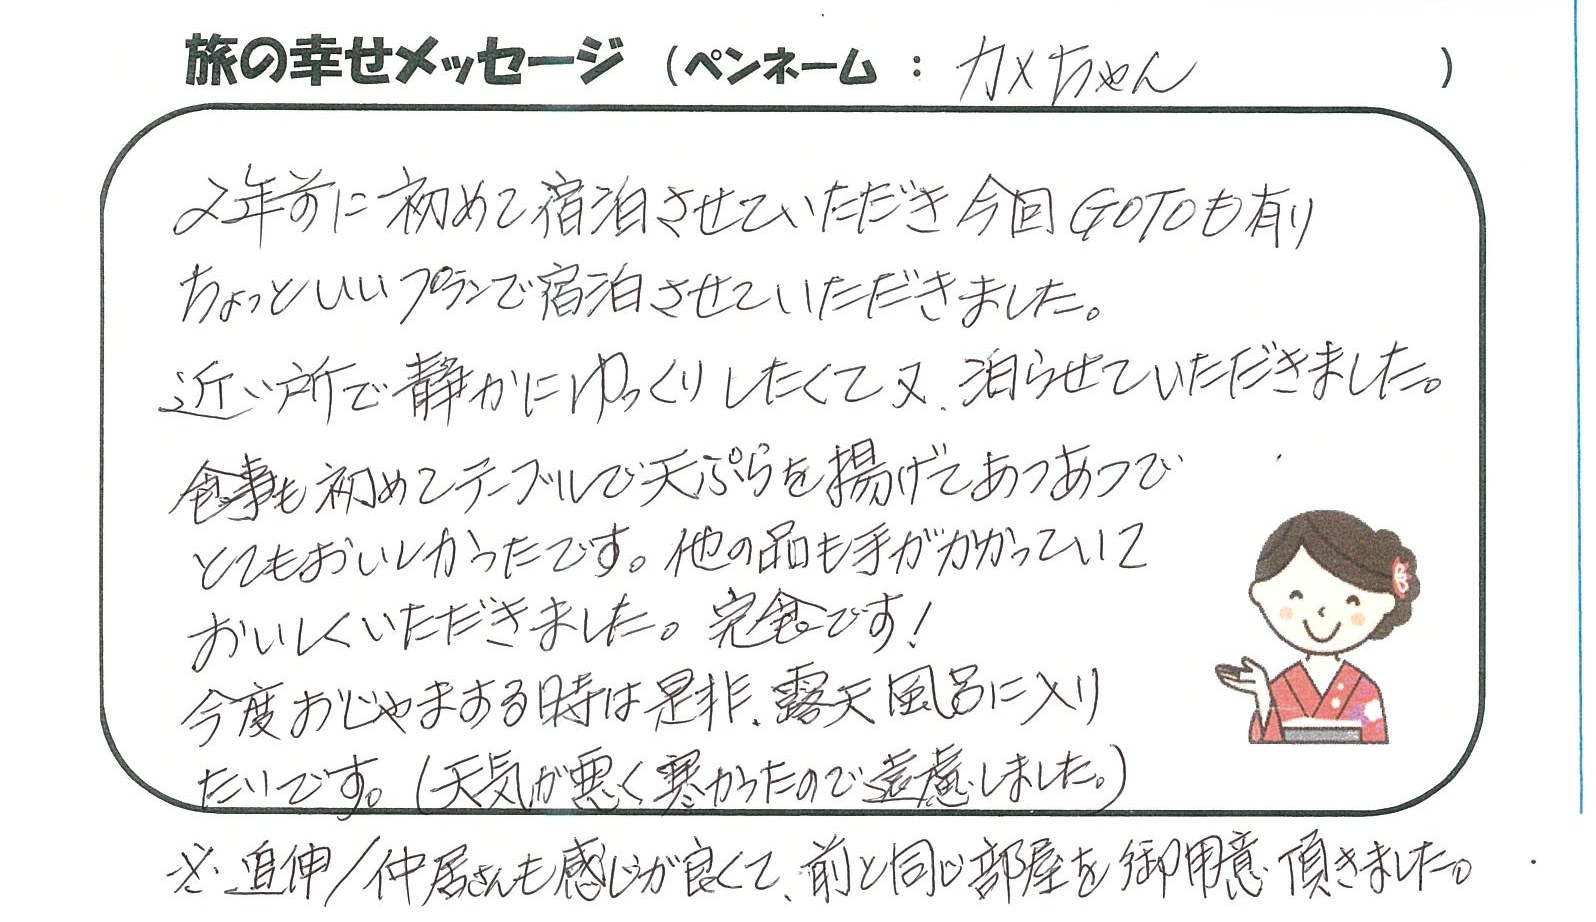 旅の幸せメッセージ (ペンネーム : カメちゃん )
2年前に初めて宿泊させていただき今回GOTOも有り
ちょっといいプランで宿泊させていただきました。
近い所で静かにゆっくりしたくて又、泊らせていただきました。
食事も初めてテーブルで天ぷらを揚げてあつあつで
とてもおいしかったです。他の品も手がかかっていて
おいしくいただきました。完食です!
今度おじゃまする時は是非、露天風呂に入り
たいです。(天気が悪く寒かったので遠慮しました。)
※追伸/仲居さんも感じが良くて、前と同じ部屋を御用意頂きました。